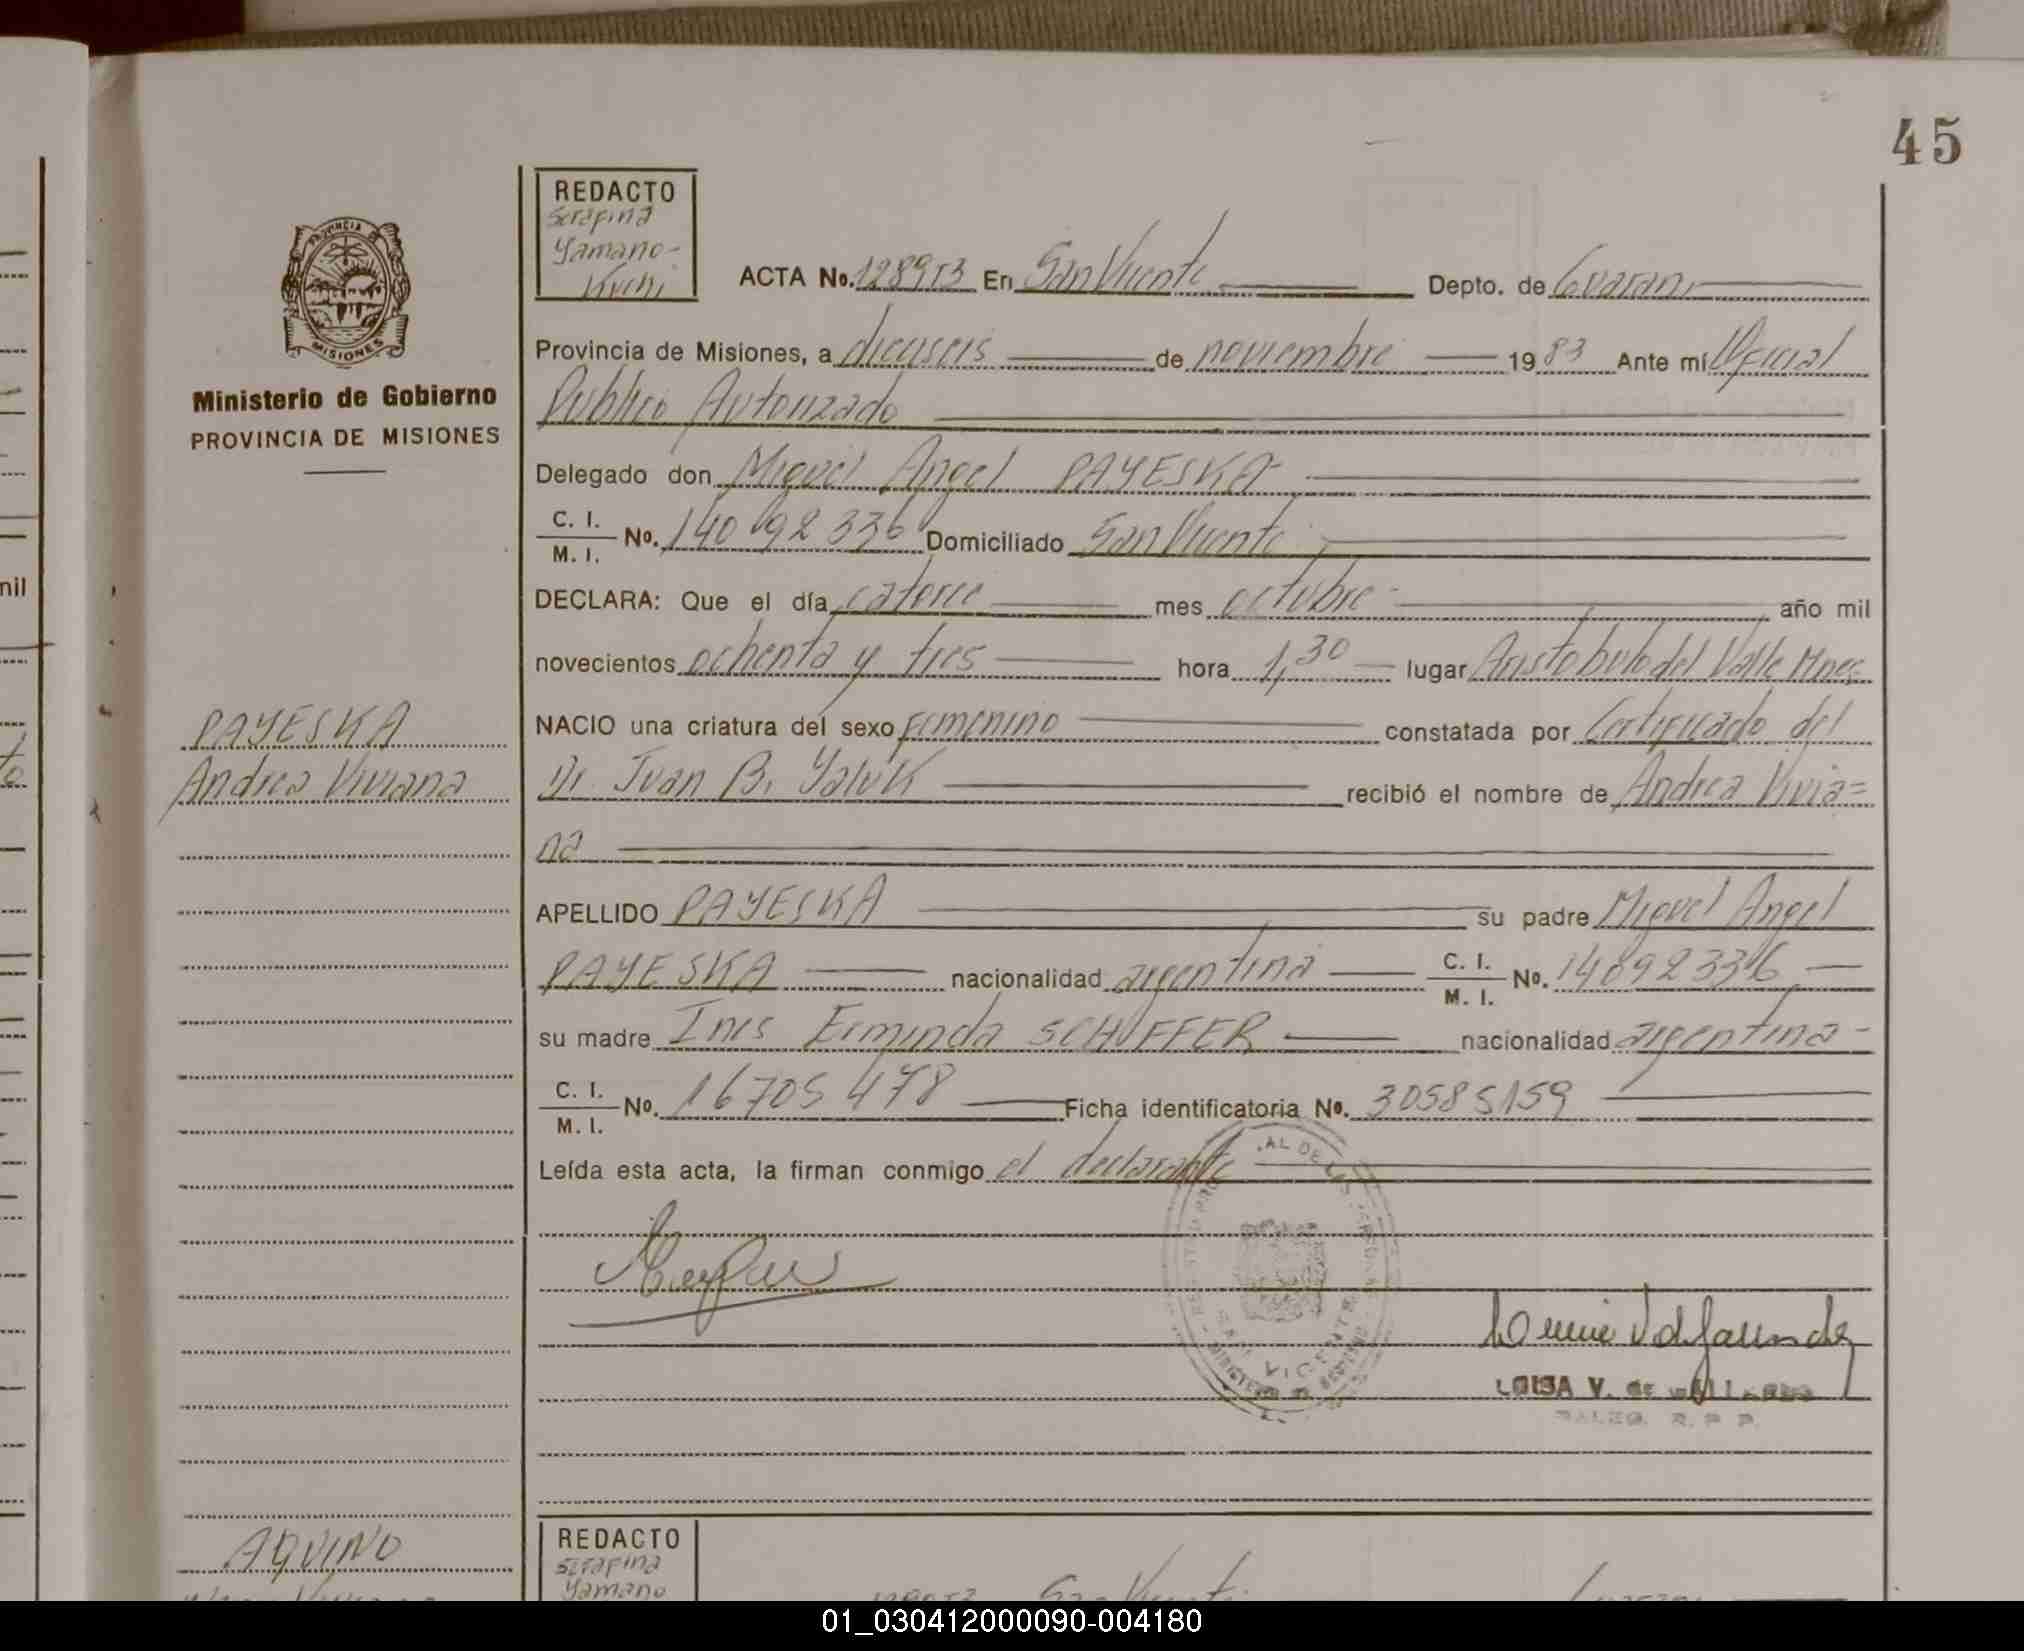 45
REDACTO
Serafina
Yamano-
Kichi
ACTA No. 128953 En San Vicente Depto. de Guarani
Provincia de Misiones, a dieciseis de noviembre 1983 Ante mí Oficial
Publico Autorizado
PROVINCIA DE
MISIONES
Ministerio de Gobierno
PROVINCIA DE MISIONES
Delegado don Miguel Angel PAYESKA
C. I.
M. I.
No. 14092336 Domiciliado San Vicente
DECLARA: Que el día catorce mes octubre año mil
novecientos ochenta y tres hora 1,30 lugar Aristobulo del Valle Mnes
NACIO una criatura del sexo femenino constatada por Certificado del
Dr. Juan B. Yaluk recibió el nombre de Andrea Vivia=
na
PAYESKA
Andrea Viviana
APELLIDO PAYESKA su padre Miguel Angel
PAYESKA nacionalidad argentina C. I.
M. I. No. 14092336
su madre Ines Erminda SCHUFFER nacionalidad argentina
C. I.
M. I.
No. 16705478 Ficha identificatoria No. 30585159
Leída esta acta, la firman conmigo el declarante
SAN VICENTE
LUISA V. de
DELEG. R. P. P.
AQUINO
REDACTO
Serafina
Yamano
San Vicente
mil
01_030412000090-004180